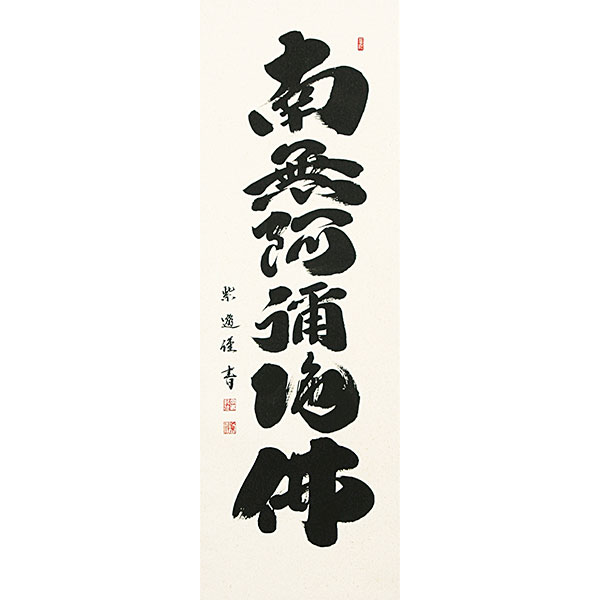 南無阿彌陀佛
紫遊謹書